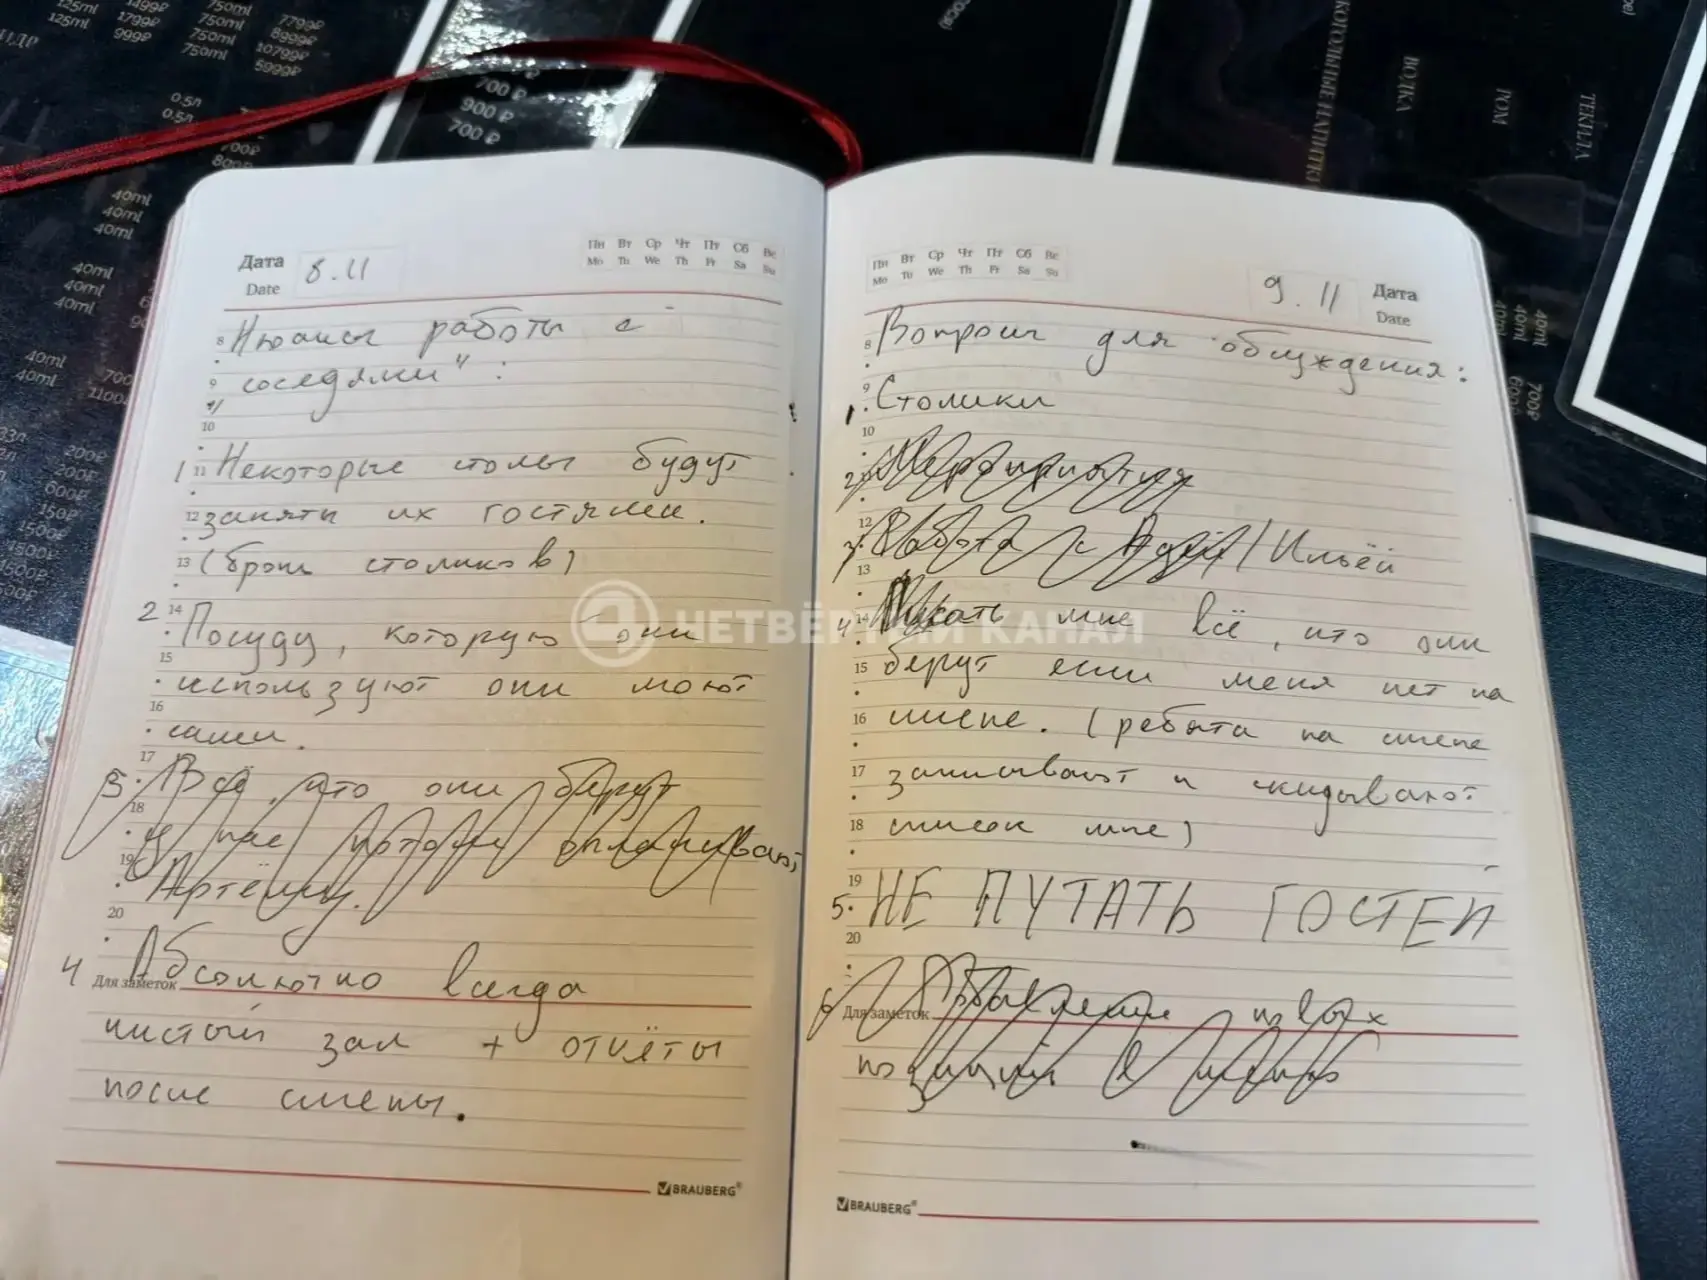 125ml
125ml
1499₽
1799₽
999₽
750ml
750ml
750ml
750ml
7799₽
8999₽
10799₽
5999₽
0.5л
0.5л
700₽
800₽
700 ₽
900 ₽
700 ₽
40ml
40ml
40ml
40ml
40ml
40ml
40ml
40ml
700
1100₽
200₽
200₽
600₽
150₽
1500₽
АЛКОГОЛЬНЫЕ НАПИТКИ
ВОДКА
РОМ
ТЕКИЛА
40ml
40ml
40ml
700₽
Дата
Date
8.11
Пн Вт Ср Чт Пт Сб Вс
Mo Tu We Th Fr Sa Su
8 Нюансы работы с
9 "соседями":
10
1 11 Некоторые столы будут
12 заняты их гостями.
13 (бронь столиков)
2 14 Посуду, которую они
15 используют они моют
16 сами.
17 3. Всё, что они берут
18 у нас потом оплачивают
19 Артёму.
20
4 Для заметок Абсолютно всегда
чистый зал + отчёты
после смены.
BRAUBERG®
Пн Вт Ср Чт Пт Сб Вс
Mo Tu We Th Fr Sa Su
9.11
Дата
Date
8 Вопросы для обсуждения:
9
1. Столики
10
2. Мероприятия
12
3. Работа с Адей/Ильёй
13
4 14 Писать мне всё, что они
15 берут если меня нет на
16 смене. (ребята на смене
17 записывают и скидывают
18 список мне)
19
5. НЕ ПУТАТЬ ГОСТЕЙ
20
6 Для заметок Добавление новых
позиций в меню
BRAUBERG®
ЧЕТВЁРТЫЙ КАНАЛ